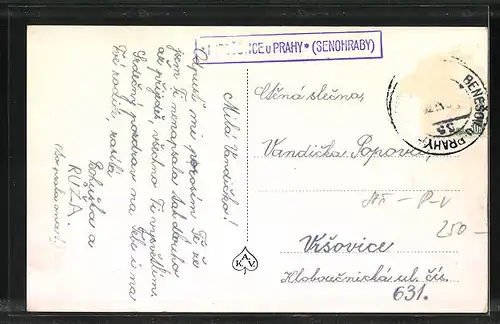 U PRAHY * (SENOHRABY)
BENEŠOV U PRAHY
Milá Vandičko!
Odpusť mi prosím Tě že
jsem Ti nenapsala tak dlouho
až přijedeš, všechno Ti vysvětlím.
Srdečný pozdrav na Tebe i na
Tvé rodiče, zasílá
Bohuška a
RŮŽA.
Ctěná slečna,
Vandička Popovic,
Vršovice
Kloboučnická ul. čís.
631.
250-
K.A.V.